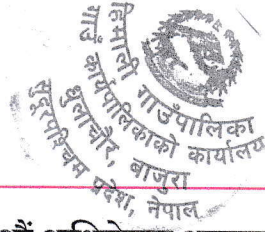 हिमाली गाउँपालिका
गाउँ कार्यपालिकाको कार्यालय
धुलाचौर, बाजुरा
सुदूरपश्चिम प्रदेश, नेपाल